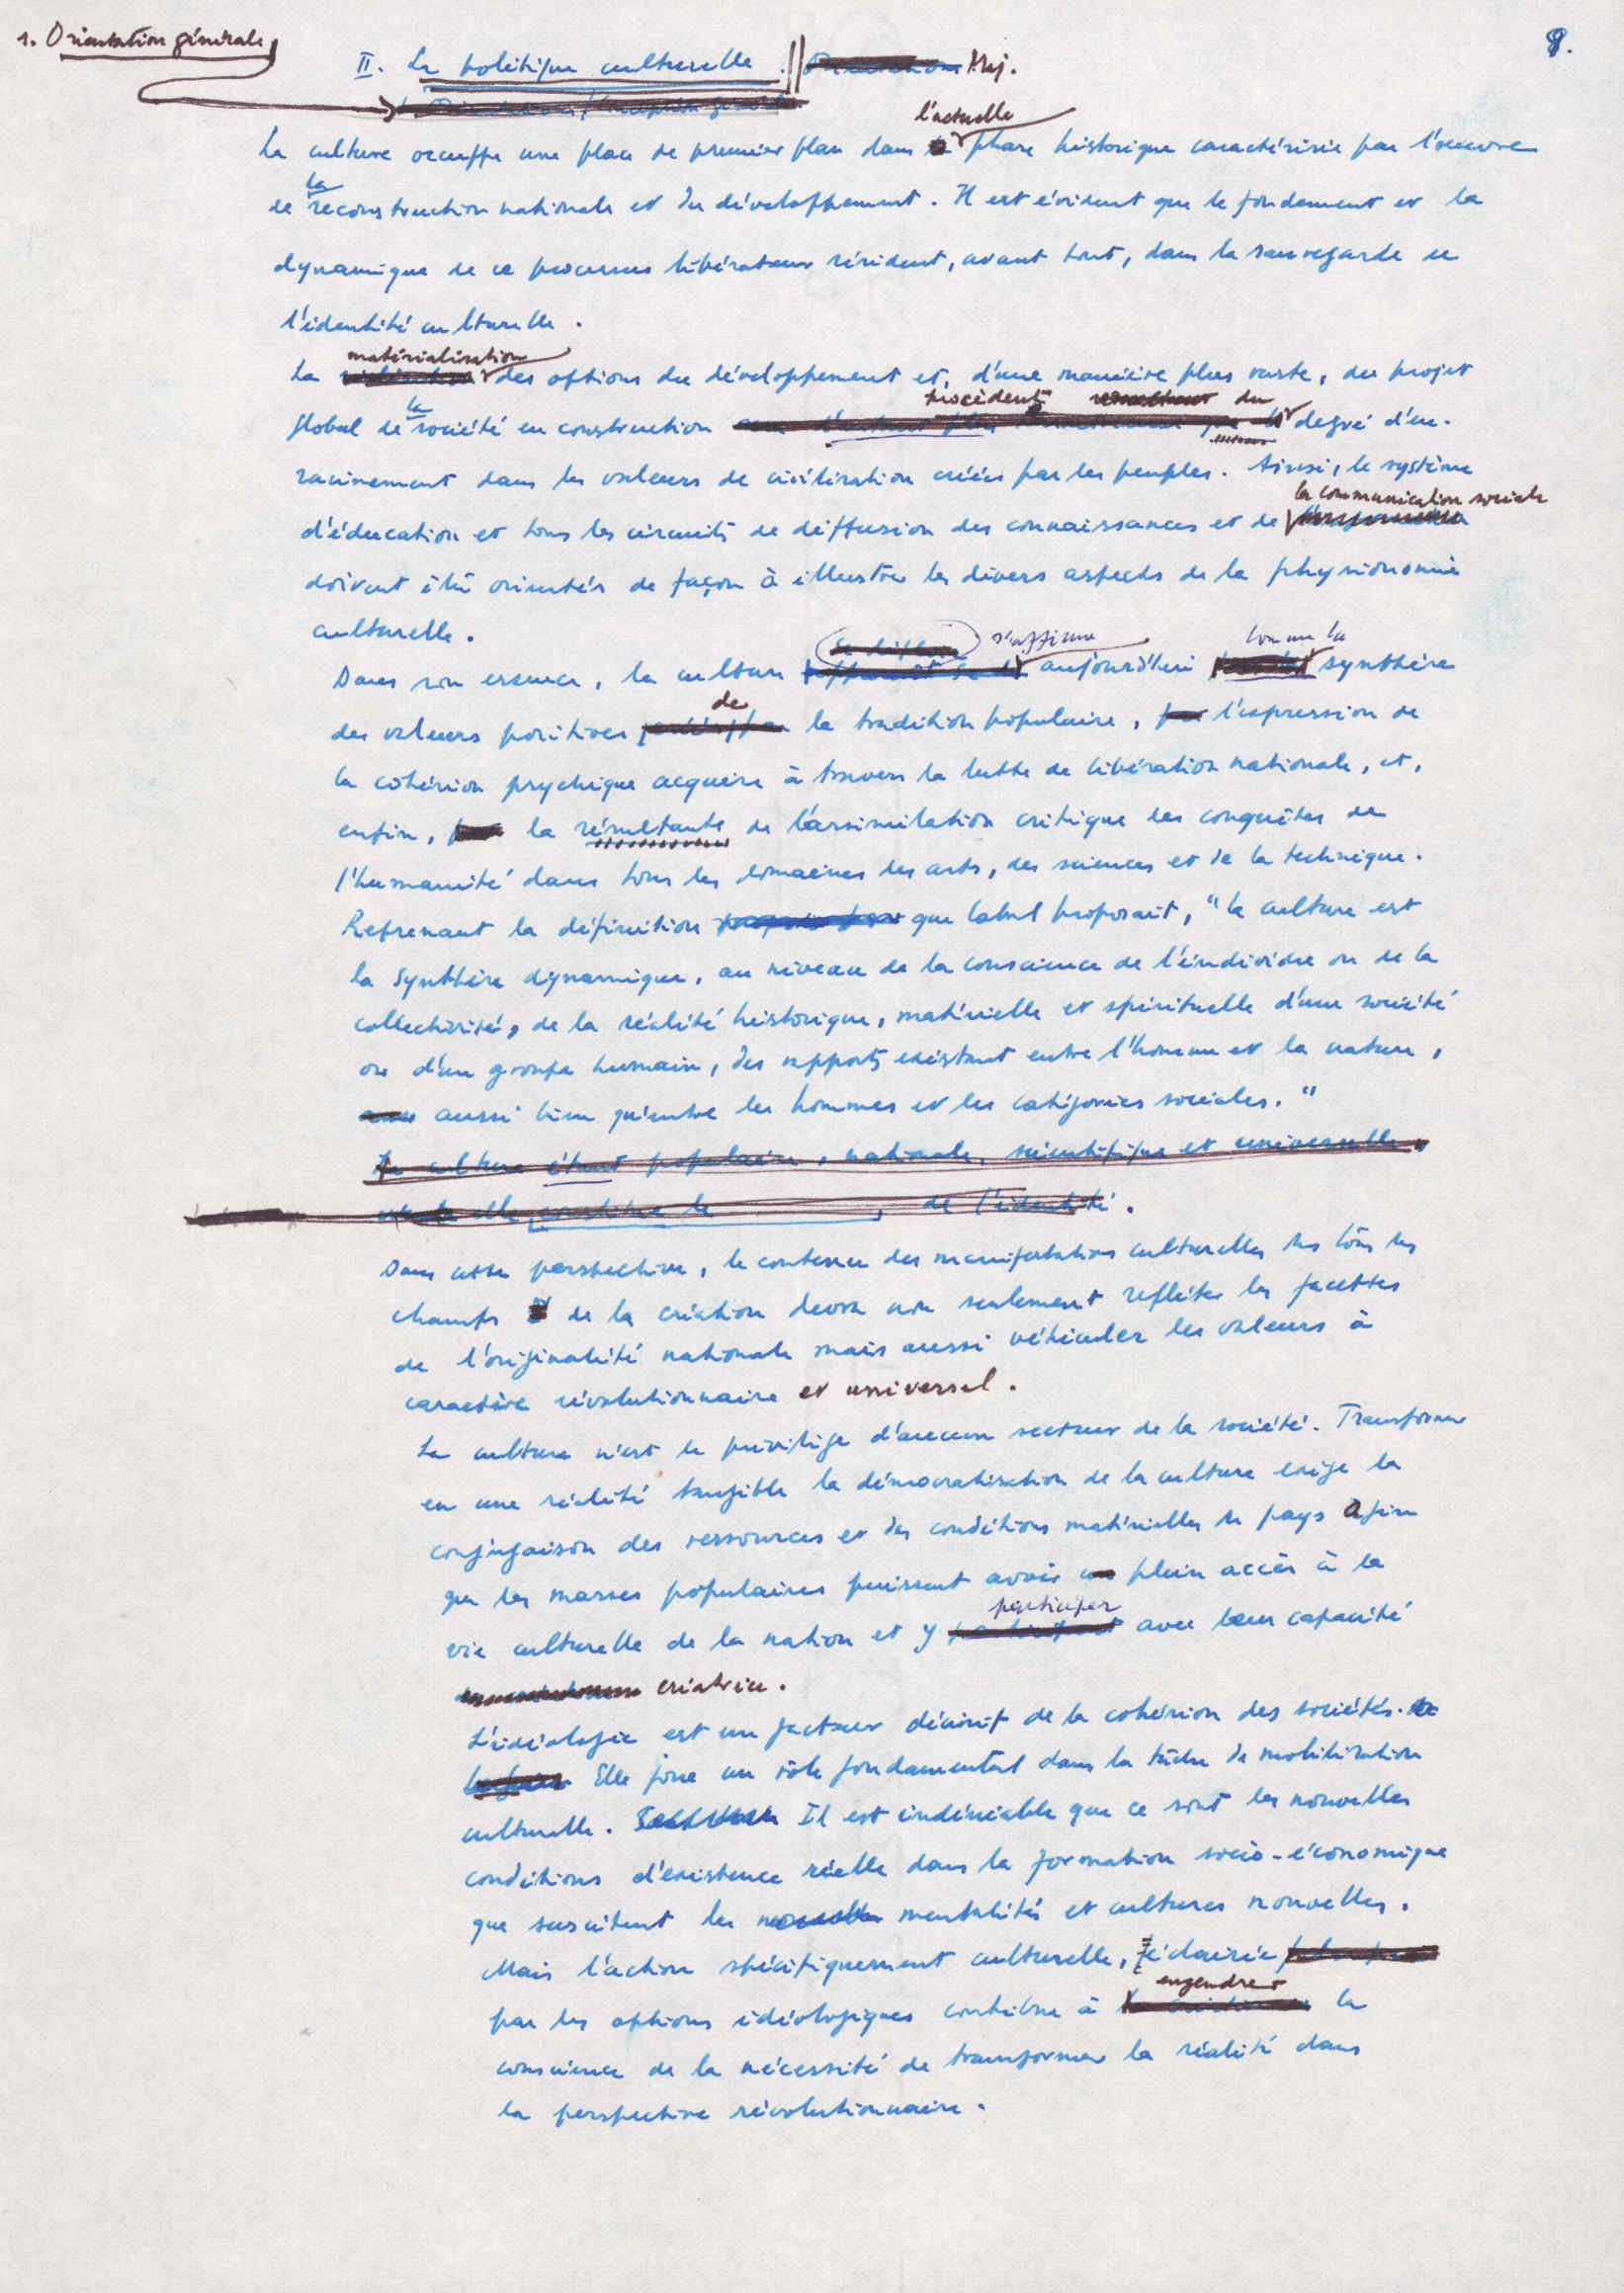 1. Orientation générale
8.
II. La politique culturelle. Maj.
l'actuelle
La culture occuppe une place de premier plan dans phase historique caractérisée par l'oeuvre
la
de reconstruction nationale et du développement. Il est évident que le fondement et la
dynamique de ce processus libérateur résident, avant tout, dans la sauvegarde de
l'identité culturelle.
matérialisation
La des options du développement et, d'une manière plus vaste, du projet
la procèdent du
global de société en construction degré d'en-
racinement dans les valeurs de civilisation créées par les peuples. Ainsi, le système
la communication sociale
d'éducation et tous les circuits de diffusion des connaissances et de
doivent être orientés de façon à illustrer les divers aspects de la physionomie
culturelle.
s'affirme comme la
Dans son essence, la culture aujourd'hui synthèse
de
des valeurs positives la tradition populaire, l'expression de
la cohésion psychique acquise à travers la lutte de libération nationale, et,
enfin, la résultante de l'assimilation critique des conquêtes de
l'humanité dans tous les domaines des arts, des sciences et de la technique.
Reprenant la définition que Cabral proposait, "la culture est
la synthèse dynamique, au niveau de la conscience de l'individu ou de la
collectivité, de la réalité historique, matérielle et spirituelle d'une société
ou d'un groupe humain, des rapports existant entre l'homme et la nature,
aussi bien qu'entre les hommes et les catégories sociales."
La culture étant populaire, nationale, scientifique et universelle,
elle constitue le , de l'identité.
Dans cette perspective, le contenu des manifestations culturelles ds tous les
champs de la création devra non seulement refléter les facettes
de l'originalité nationale mais aussi véhiculer les valeurs à
caractère révolutionnaire et universel.
La culture n'est le privilège d'aucun secteur de la société. Transformer
en une réalité tangible la démocratisation de la culture exige la
conjugaison des ressources et des conditions matérielles du pays afin
que les masses populaires puissent avoir un plein accès à la
participer
vie culturelle de la nation et y avec leur capacité
créatrice.
L'idéologie est un facteur décisif de la cohésion des sociétés.
Elle joue un rôle fondamental dans la tâche de mobilisation
culturelle. Il est indéniable que ce sont les nouvelles
conditions d'existence réelle dans la formation socio-économique
que suscitent les nouvelles mentalités et cultures nouvelles.
Mais l'action spécifiquement culturelle, éclairée
engendrer
par les options idéologiques contribue à la
conscience de la nécessité de transformer la réalité dans
la perspective révolutionnaire.